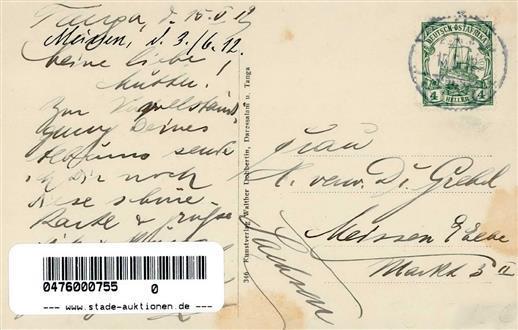 Tanga, d. 15.V.12
Meissen, d. 3./6.12.
Meine liebe
Mutter!
Zur Vervollständi
gung Deines
Albums sende
ich Dir noch
diese schöne
Karte & grüsse
DEUTSCH-OSTAFRIKA
4 HELLER 4
346 Kunstverlag Walther Dobbertin, Daressalam u. Tanga
Frau
verw. Dr. Grebel
Meissen Elbe
Markt 3 II
Sachsen
0476000755 0
www.stade-auktionen.de